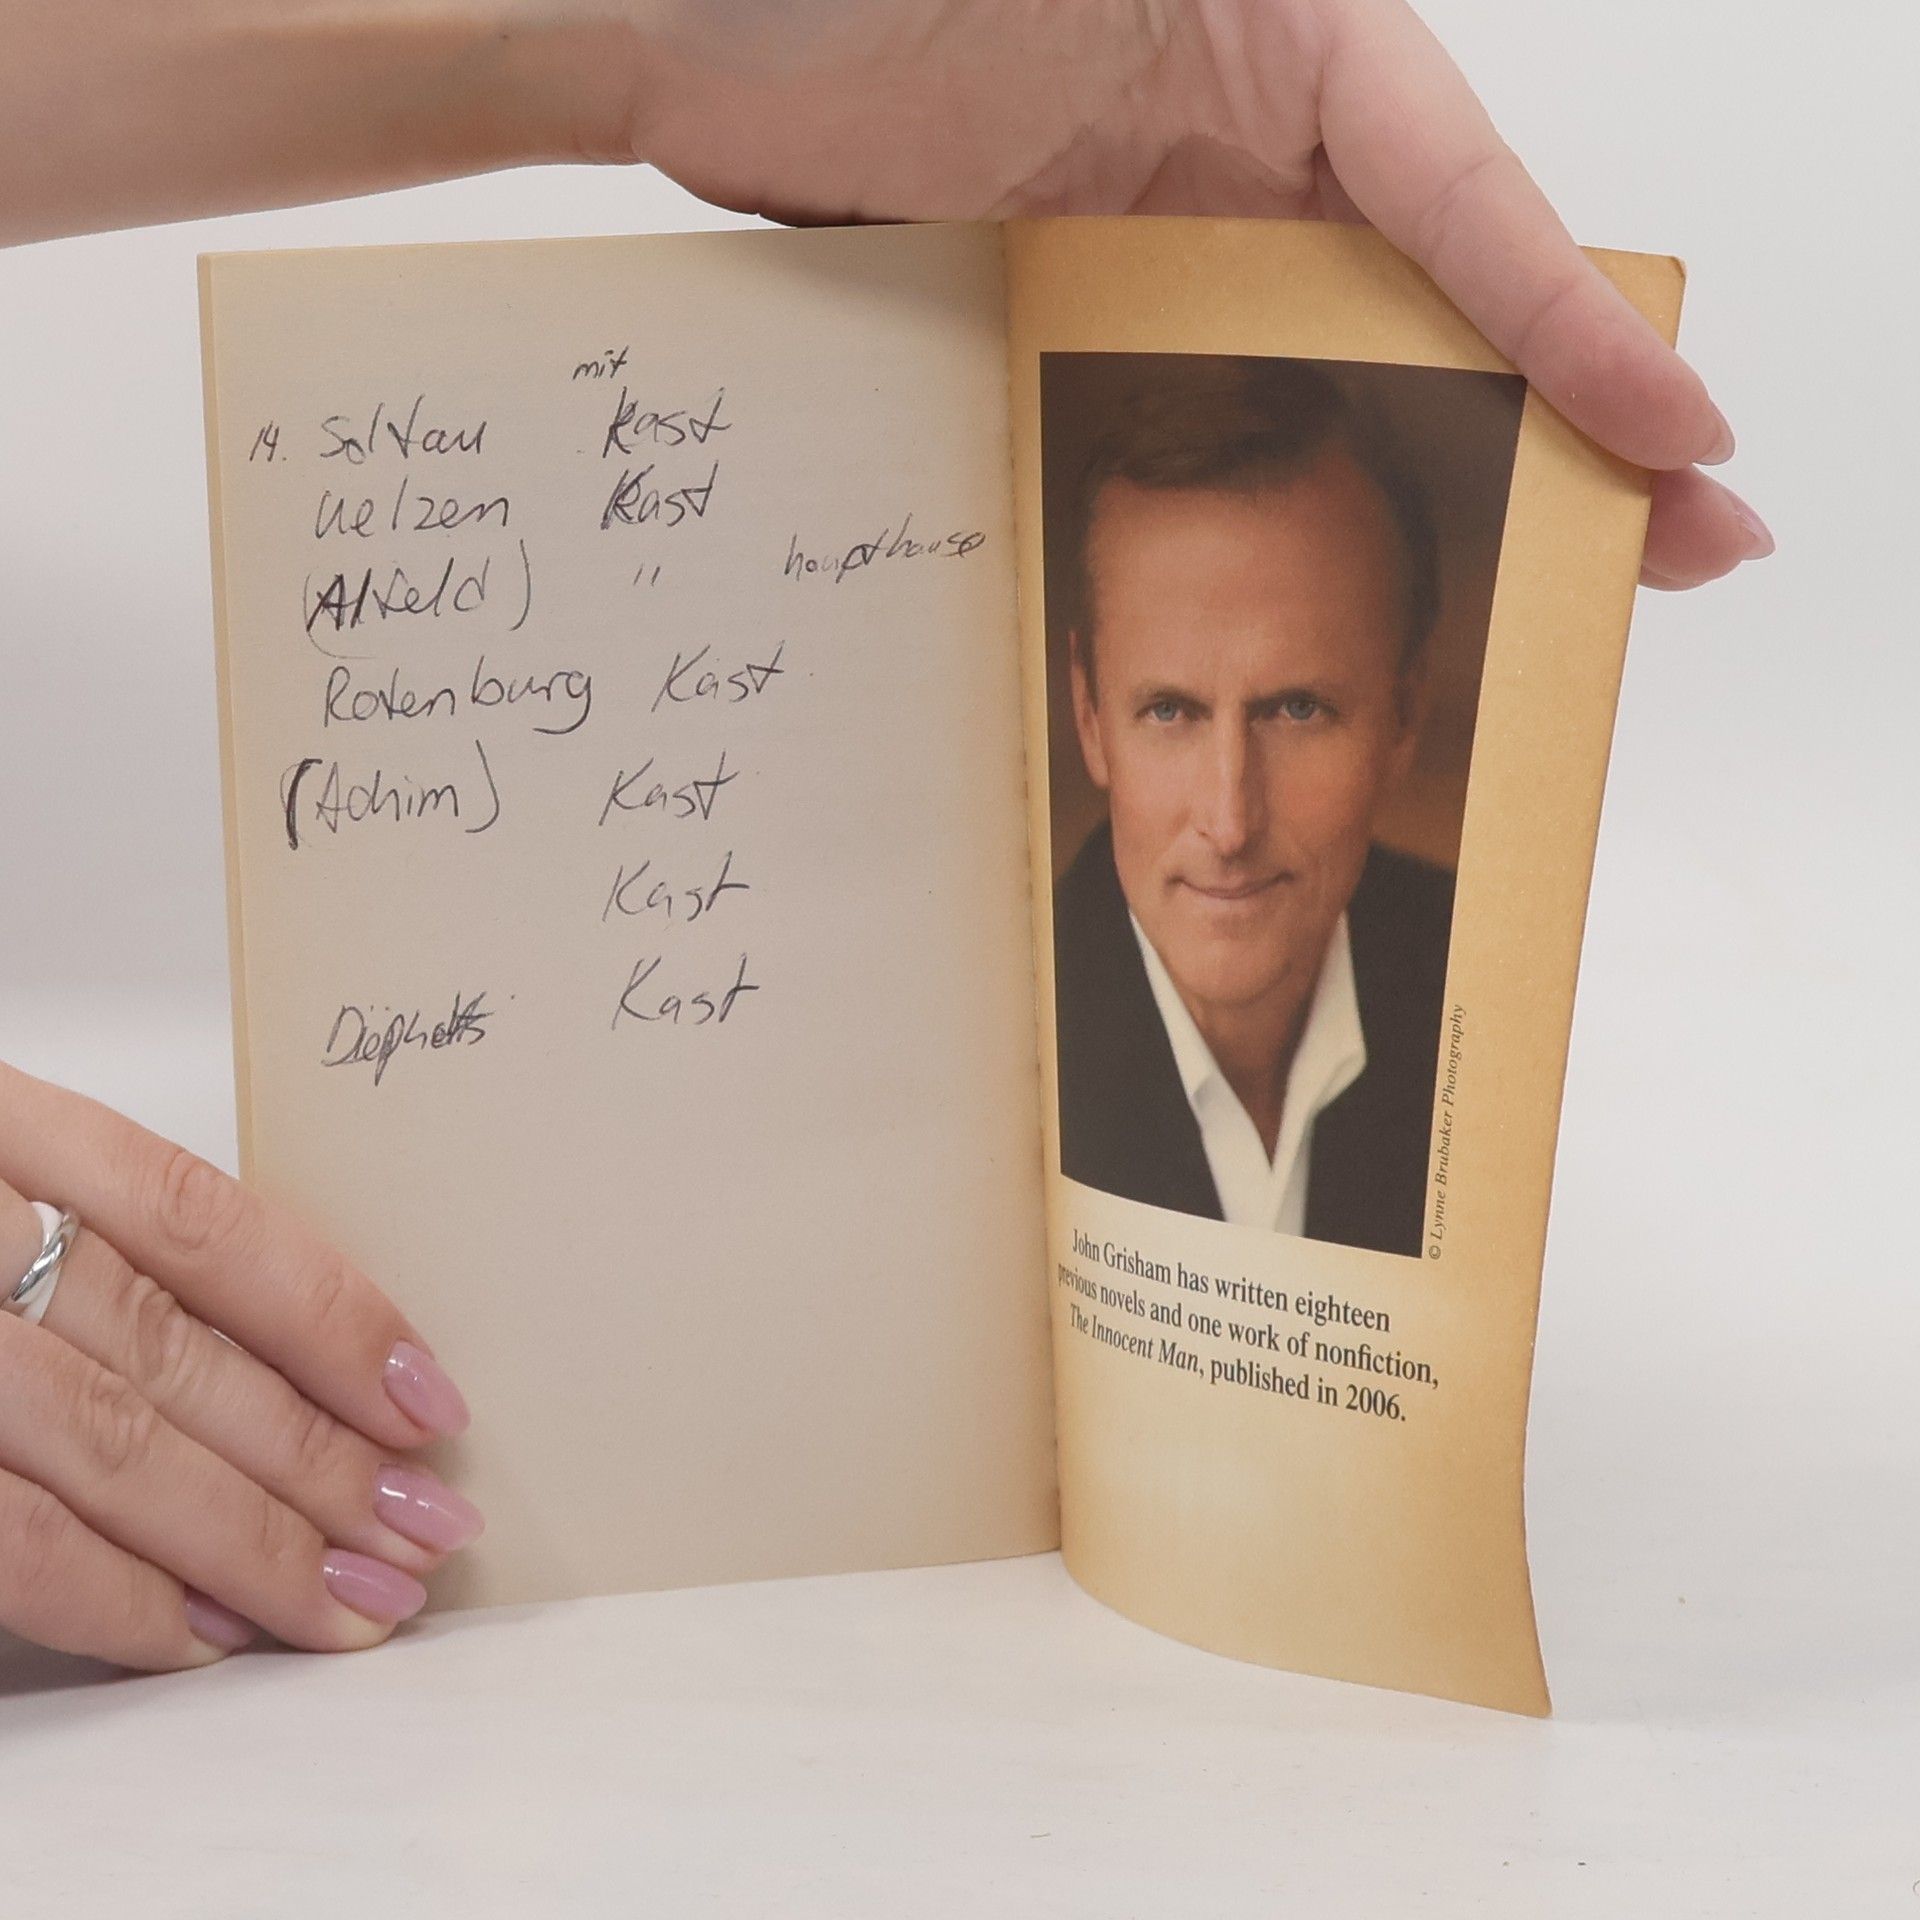 mit
14. Soltau Kast
Uelzen Kast
(Alfeld) " haupthause
Rotenburg Kast
(Achim) Kast
Kast
Kast
© Lynne Brubaker Photography
John Grisham has written eighteen
previous novels and one work of nonfiction,
The Innocent Man, published in 2006.